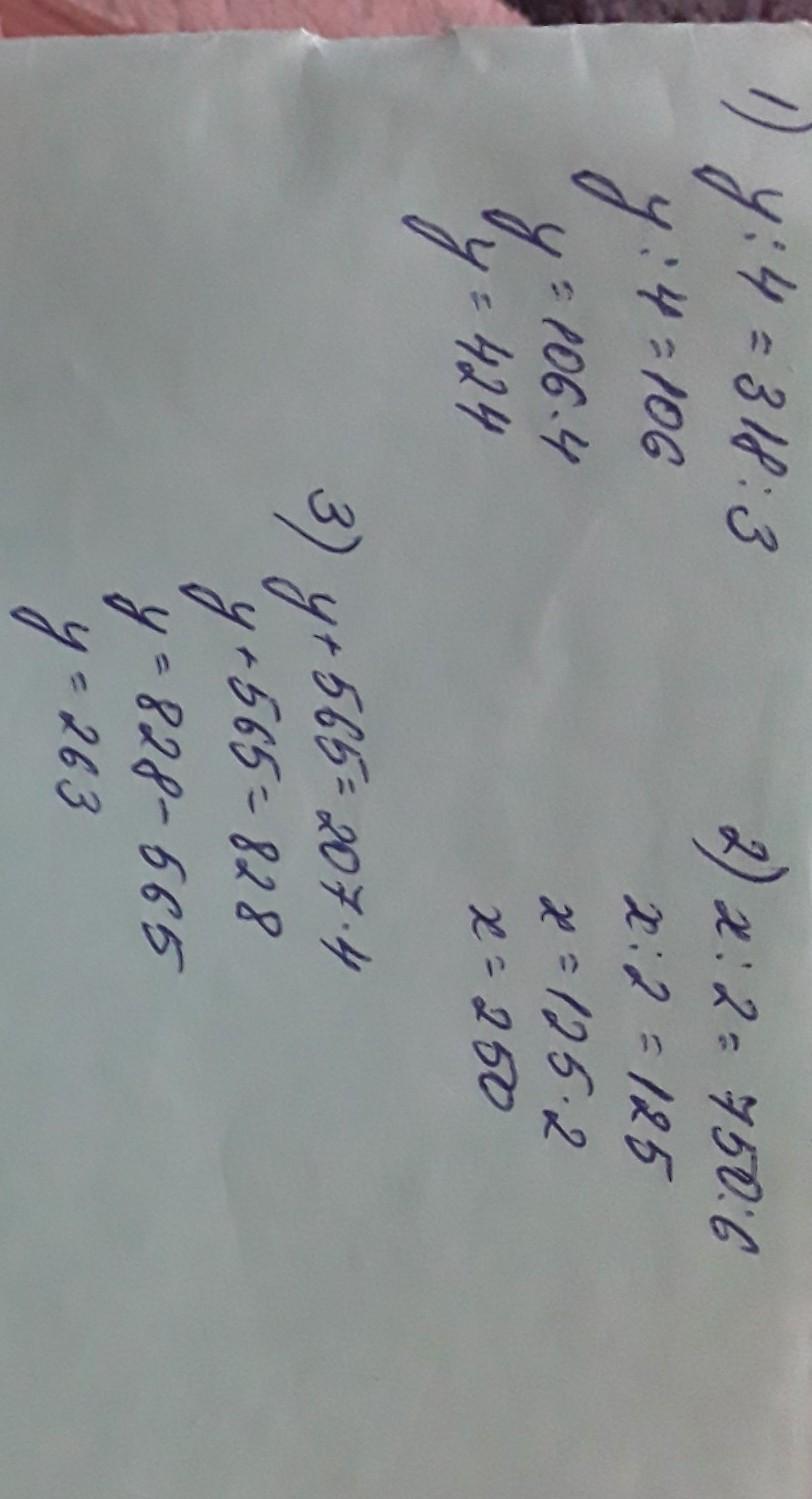 1) y : 4 = 318 : 3
y : 4 = 106
y = 106 · 4
y = 424
2) x : 2 = 750 : 6
x : 2 = 125
x = 125 · 2
x = 250
3) y + 565 = 207 · 4
y + 565 = 828
y = 828 - 565
y = 263